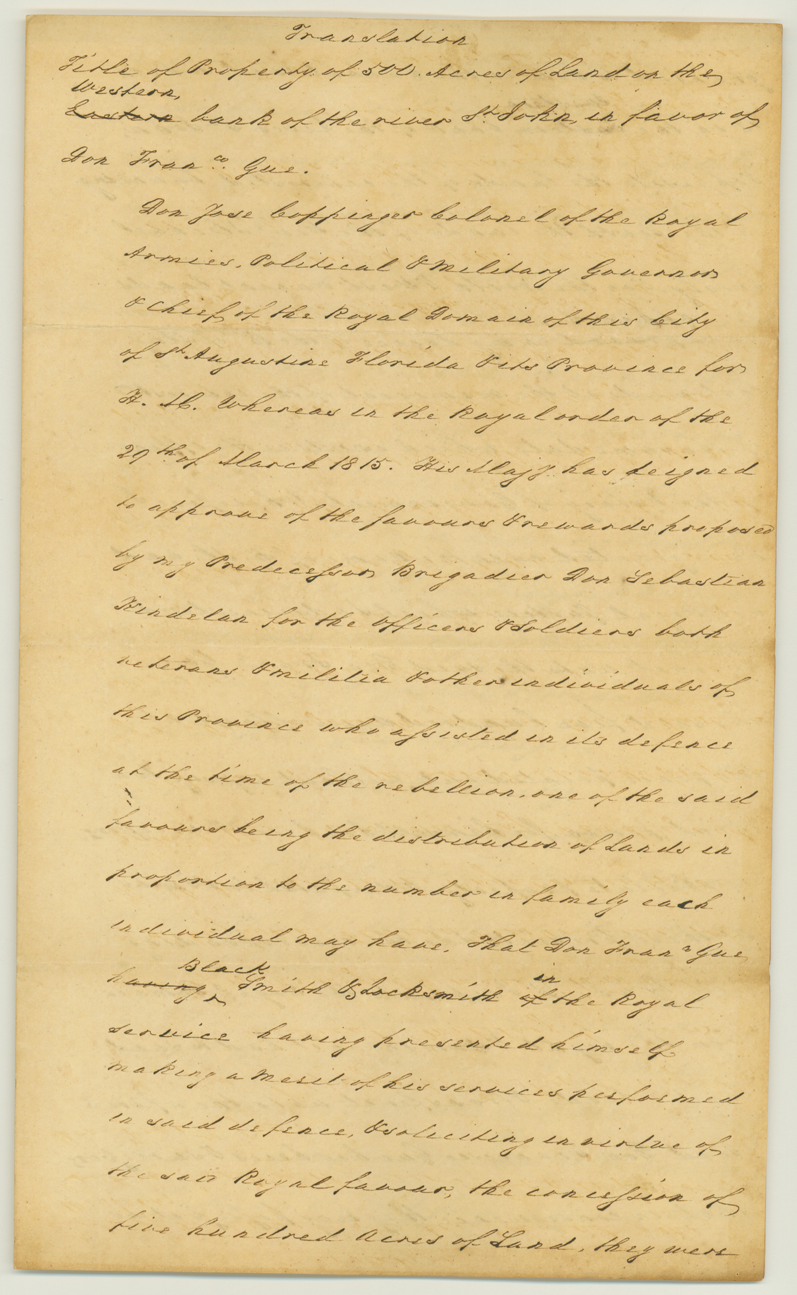 Translation
Title of Property of 500 Acres of Land on the
Western
Eastern bank of the river St. John in favor of
Don Franco. Gue.
Don Jose Coppinger Colonel of the Royal
Armies, Political & Military Governor
& Chief of the Royal Domain of this City
of St. Augustine Florida & its Province for
H. M. Whereas in the Royal order of the
29th of March 1815. His Majy. has deigned
to approve of the favours & rewards proposed
by my Predecessor Brigadier Don Sebastian
Kindelan for the officers & soldiers both
veterans & militia & other individuals of
this Province who assisted in its defence
at the time of the rebellion, one of the said
favours being the distribution of Lands in
proportion to the number in family each
individual may have. That Don Frano Gue
Black in
having Smith & Locksmith of the Royal
service having presented himself
making a merit of his services performed
in said defence, & soliciting in virtue of
the said Royal favour, the concession of
five hundred Acres of Land, they were